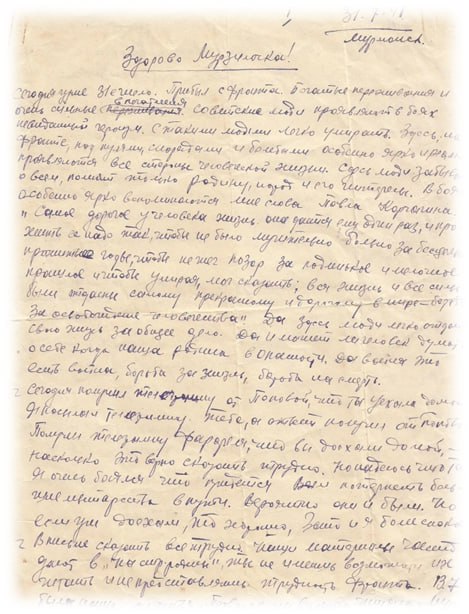 31-7-41
Мурманск.
Здорово Мурзилочка!
Сегодня уже 31 число. Прибыл с фронта. Богатые переживания и
очень сильные впечатления. Советские люди проявляют в боях
невиданный героизм. С такими людьми легко умирать. Здесь, на
фронте, под пулями, снарядами и бомбами особенно ярко и
проявляются все стороны человеческой жизни. Здесь люди забывают
о всем, помнят только родину, и его интересы. В боях
особенно ярко вспоминаются мне слова Павла Корчагина.
"Самое дорогое у человека жизнь. она дается ему один раз, и про
жить ее надо так, чтобы не было мучительно больно за бесцельно
прожитые годы, чтобы не жег позор за подленькое и мелочное
прошлое и чтобы умирая, мог сказать: вся жизнь и все силы
были отданы самому прекрасному и дорогому в мире - борьбе
за освобождение человечества" Да здесь люди легко отдают
свою жизнь за общее дело. Да и может ли человек думать
о себе когда наша родина в опасности. Да война это
есть война, борьба за жизнь, борьба на смерть.
Сегодня получил телеграмму от Поповой, что ты уехала домой
Я послал телеграмму. Тебе, а ответ получил от Поповой
Получил телеграмму, что вы доехали домой,
насколько это верно сказать трудно. Но надеюсь что так
Я очень боялся что придется вам потерпеть большие
мытарства в пути. Вероятно они и были. Но
если уж доехали, то хорошо, зато и я более спокоен
В письме сказать все трудно. Наши материалы часто
дают в "", ты не имеешь возможности их
читать и не представляешь трудность фронта.